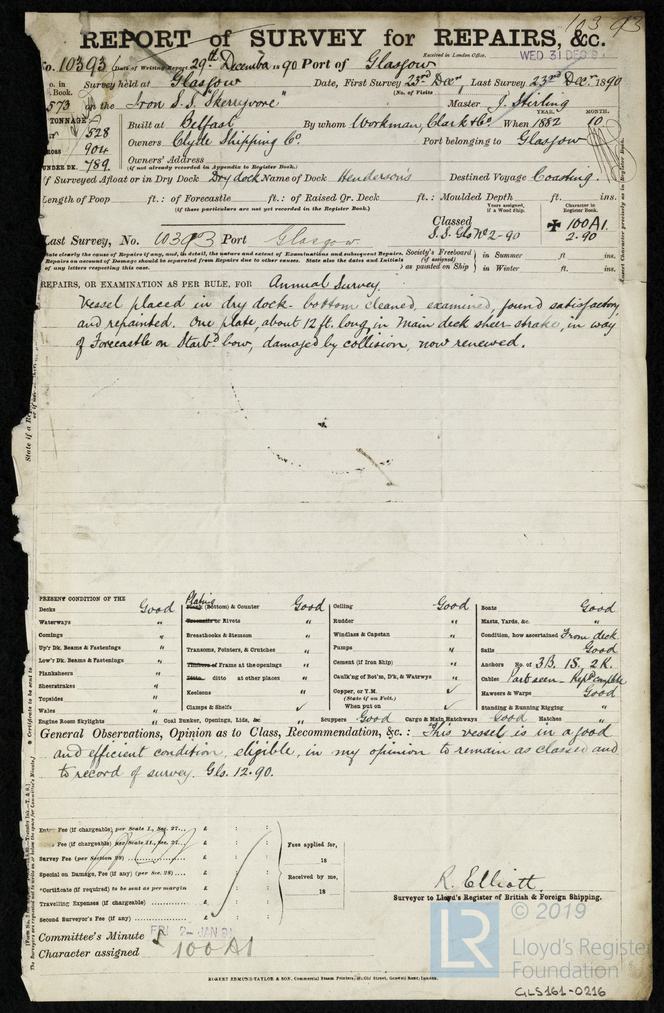 10393
REPORT of SURVEY for REPAIRS, &c.
Received in London Office. WED 31 DEC
No. 10393 Date of Writing Report 29th December 1890 Port of Glasgow
No. in Survey held at Glasgow Date, First Survey 23rd Decr, Last Survey 23rd Decr 1890
Book. (No. of Visits)
573 on the Iron S.S. Skerryvore Master J. Stirling
TONNAGE YEAR. MONTH.
528 Built at Belfast By whom Workman, Clark & Co. When 1882 10
GROSS 904 Owners Clyde Shipping Co. Port belonging to Glasgow
UNDER DK. 789. Owners' Address
(if not already recorded in Appendix to Register Book.)
If Surveyed Afloat or in Dry Dock Dry dock Name of Dock Henderson's Destined Voyage Coasting.
Length of Poop ft.: of Forecastle ft.: of Raised Qr. Deck ft.: Moulded Depth ft. ins.
(if these particulars are not yet recorded in the Register Book.)
Years assigned, if a Wood Ship. Character in Register Book.
Classed ✠ 100A1.
S.S. Gls No 2-90 2.90
Last Survey, No. 10393 Port Glasgow
State clearly the cause of Repairs, if any, and, in detail, the nature and extent of Examinations and subsequent Repairs.
Repairs on account of Damage should be separated from Repairs due to other causes. State also the dates and Initials
of any letters respecting this case.
Society's Freeboard (if assigned) as painted on Ship in Summer ft. ins.
in Winter ft. ins.
REPAIRS, OR EXAMINATION AS PER RULE, FOR Annual Survey
Vessel placed in dry dock - bottom cleaned, examined, found satisfactory
and repainted. One plate, about 12 ft. long, in Main deck sheer-strake, in way
of Forecastle on Starbd bow, damaged by collision, now renewed.
PRESENT CONDITION OF THE
Decks Good
Waterways "
Comings "
Up'r Dk. Beams & Fastenings "
Low'r Dk. Beams & Fastenings "
Planksheers "
Sheerstrakes "
Topsides "
Wales "
Engine Room Skylights "
Plating
Plank (Bottom) & Counter Good
Treenails or Rivets "
Breasthooks & Stemson "
Transoms, Pointers, & Crutches "
Timbers or Frames at the openings "
Ditto ditto at other places "
Keelsons "
Clamps & Shelfs ✓
Coal Bunker, Openings, Lids, &c "
Ceiling Good
Rudder "
Windlass & Capstan "
Pumps "
Cement (if Iron Ship) "
Caulk'ng of Bot'm, D'k, & Waterwys "
Copper, or Y.M. ✓
(State if on Felt.)
When put on ✓
Scuppers Good Cargo & Main Hatchways Good Hatches "
Boats Good
Masts, Yards, &c. "
Condition, how ascertained From deck
Sails Good
Anchors No. of 3B. 1S. 2K.
Cables Part seen. Rep. Complete
Hawsers & Warps Good
Standing & Running Rigging "
General Observations, Opinion as to Class, Recommendation, &c. : This vessel is in a good
and efficient condition, eligible, in my opinion to remain as classed and
to record of survey. Gls. 12.90.
Entry Fee (if chargeable) per Scale I., Sec. 27... £ : :
Fee (if chargeable) per Scale II., Sec. 27... £ : :
Survey Fee (per Section 28) £ : :
Special on Damage, Fee (if any) (per Sec. 28) £ : :
*Certificate (if required) to be sent as per margin £ : :
Travelling Expenses (if chargeable) £ : :
Second Surveyor's Fee (if any) £ : :
Fees applied for,
18
Received by me,
18
R. Elliott.
Surveyor to Lloyd's Register of British & Foreign Shipping.
Committee's Minute FRI 2 - JAN 91
Character assigned 100A1
LR © 2019
Lloyd's Register
Foundation
GLS161-0216